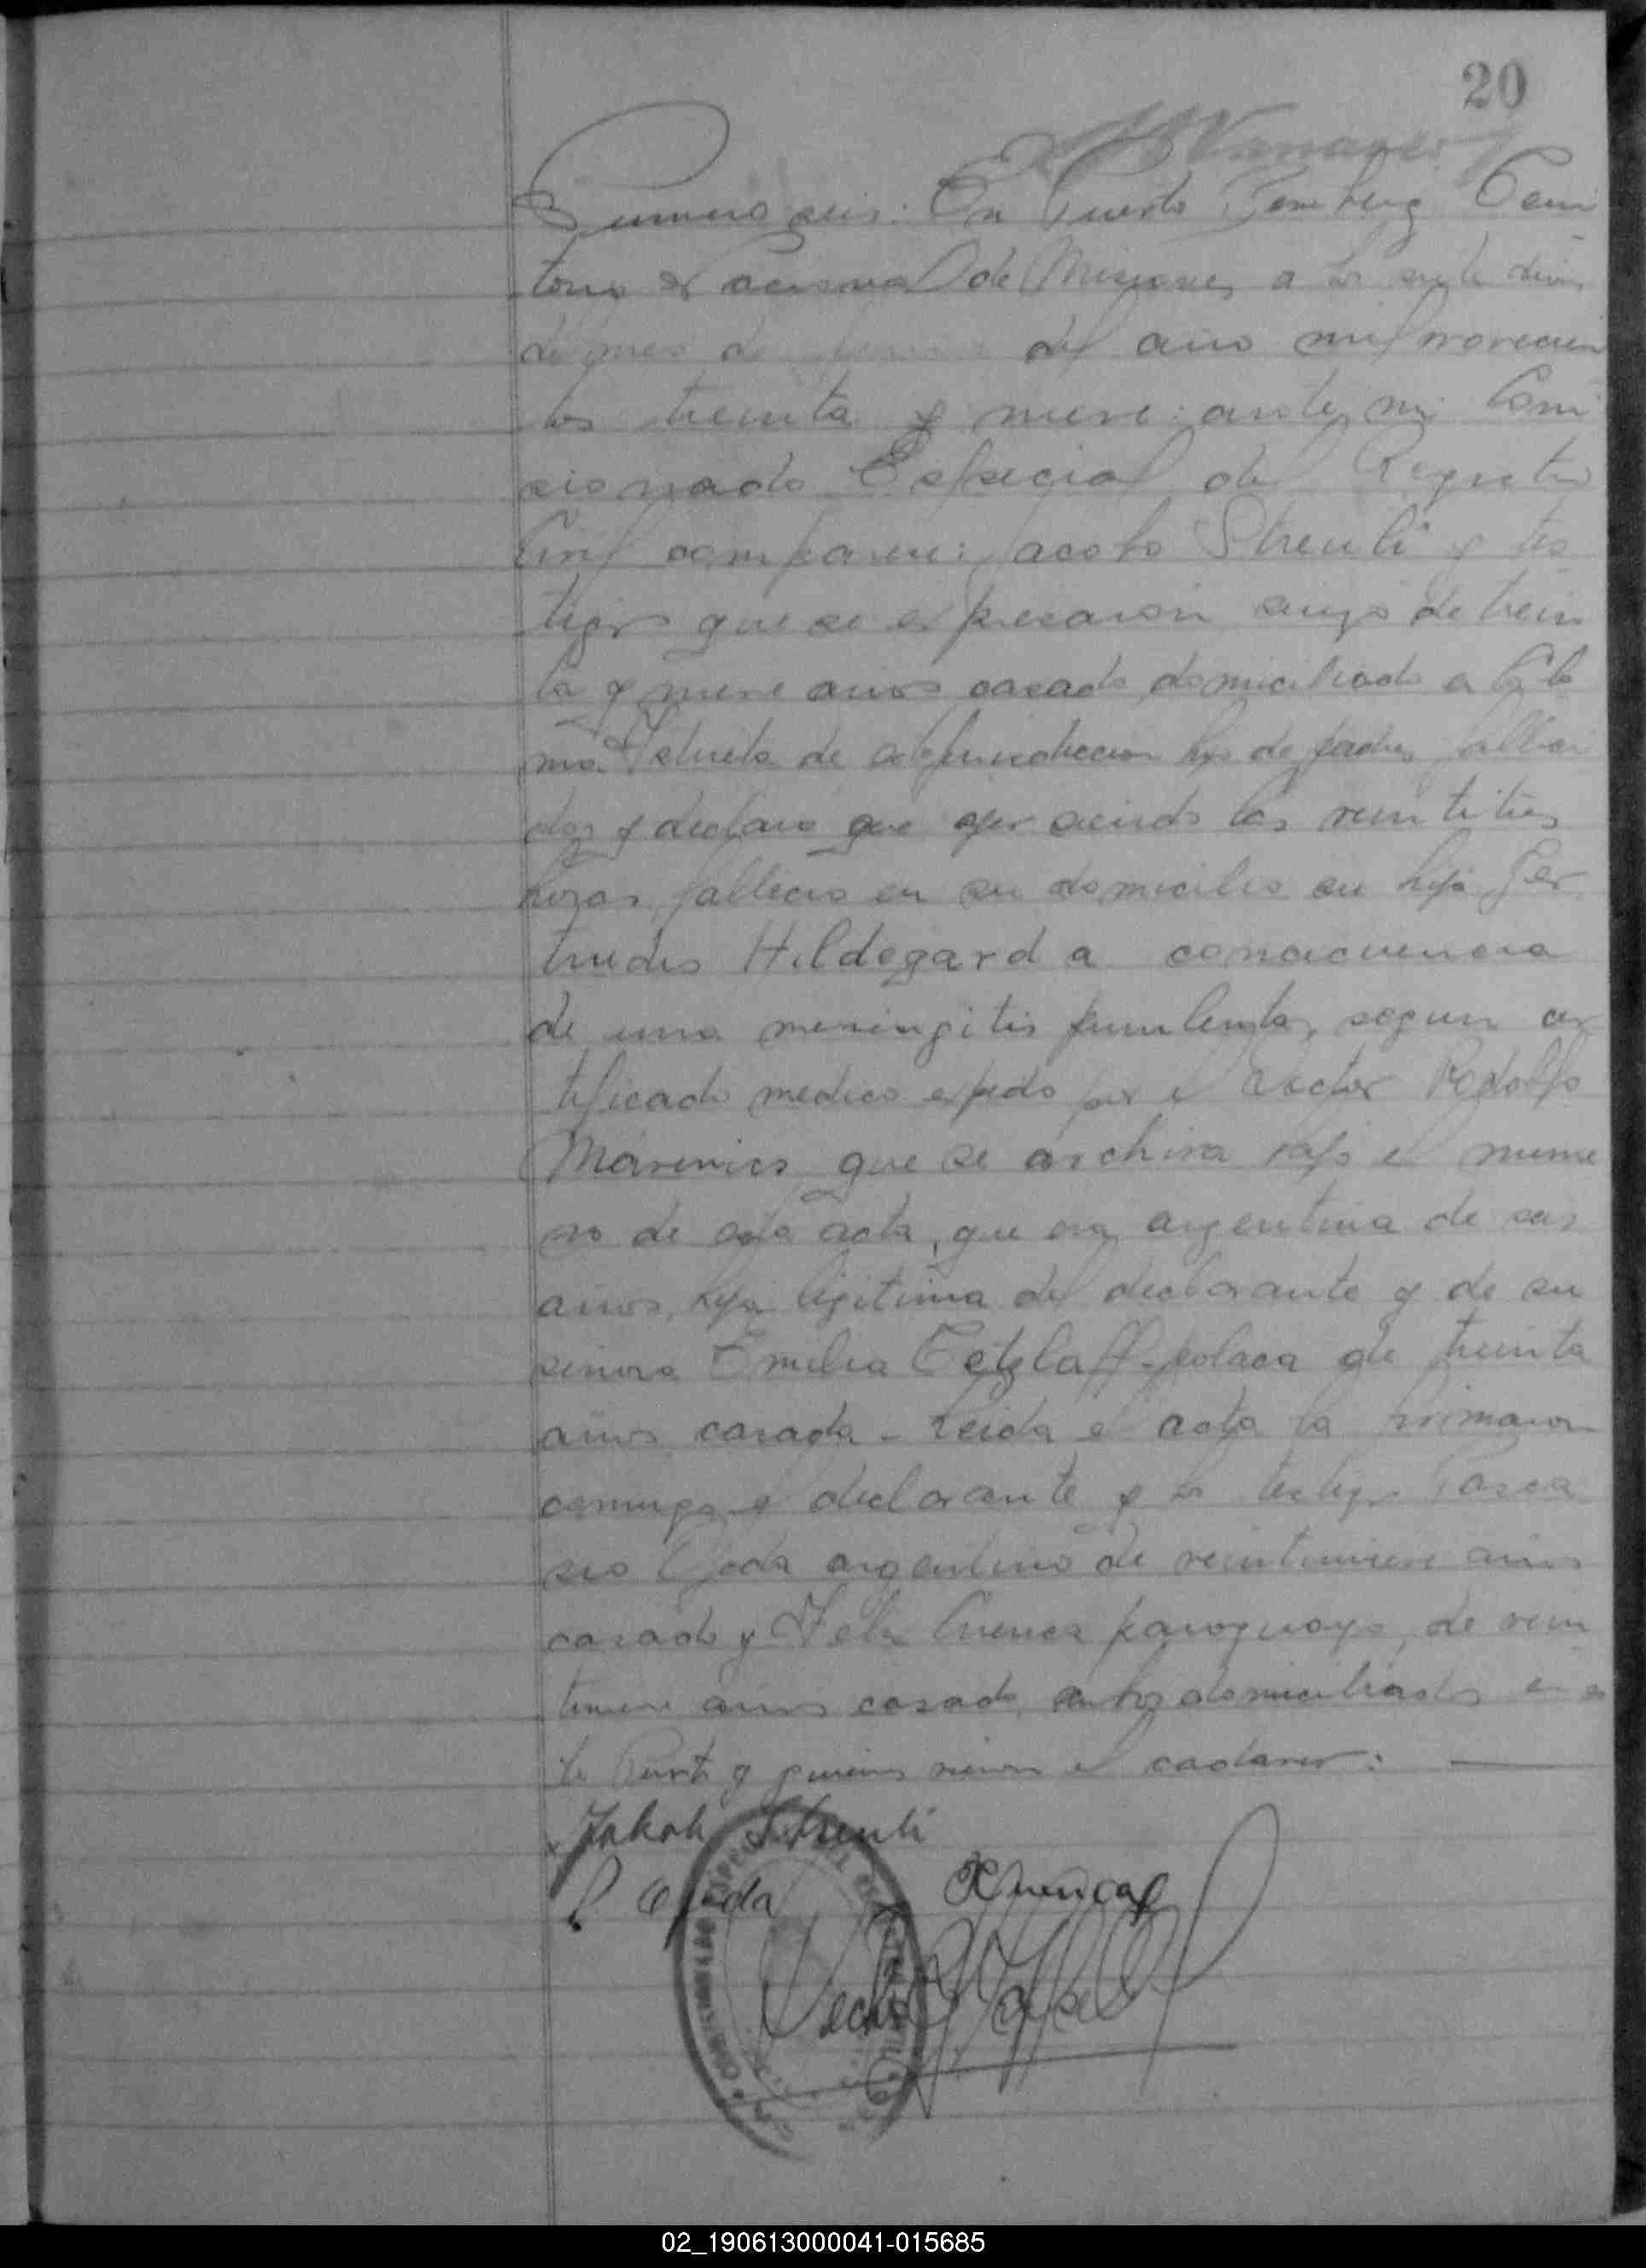 20
Numero seis: En Puerto Bemberg Terri
torio Nacional de Misiones a los siete dias
del mes de del año mil novecien
tos treinta y nueve: ante mi Comi
sionado Especial del Registro
Civil comparece: Jacobo Streuli y tes
tigos que se expresaran suizo de trein
ta y nueve años casado domiciliado a
de esta jurisdiccion hijo de padres falleci
dos y declaro que ayer siendo las veintitres
horas, fallecio en su domicilio su hija Ger
trudis Hildegard a consecuencia
de una meningitis purulenta, segun cer
tificado medico expedido por el doctor Rodolfo
que se archiva bajo el nume
ro de esta acta, que era argentina de seis
años, hija legitima del declarante y de su
señora Emilia Tetzlaff - polaca de treinta
años casada - Leida el acta la firmaron
conmigo el declarante y los testigos Pasca
sio Ojeda argentino de veintinueve años
casado y Felix Cuenca paraguayo, de vein
tinueve años casado, ambos domiciliados en es
te Puerto y quienes vieron el cadaver:
Jakob Streuli
P. Ojeda Cuenca
02_190613000041-015685